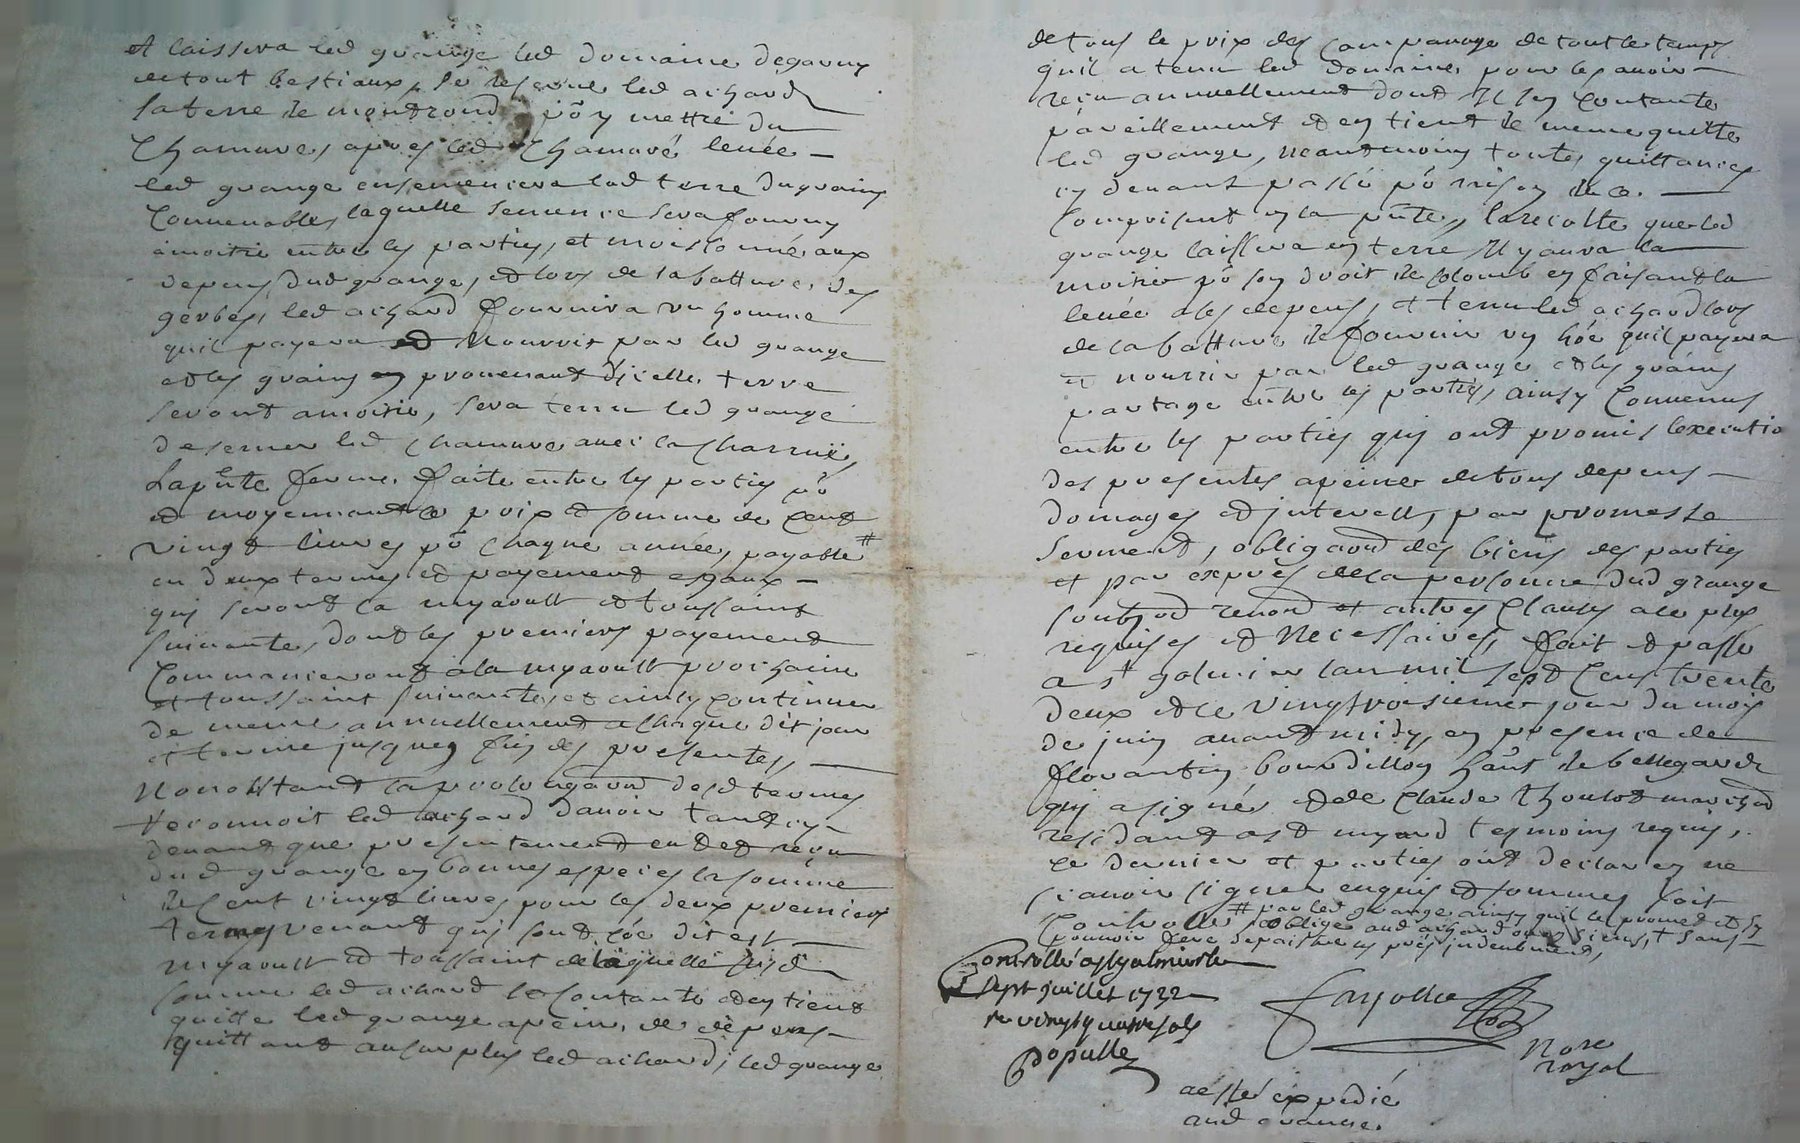 et laissera led grange led domaine degarny
de tout bestiaux, se reserve led achard
la terre de montrond pō y mettre du
chamure, apres led chamuré levée
led grange ensemencera lad terre du grains
convenables laquelle semence sera fourny
a moitie entre les parties, et moissonné aux
depens dud grange, et lors de la batture des
gerbes, led achard fournira un homme
quil payera et nourrir par led grange
et les grains en provenant d'icelle terre
seront a moitie, sera tenu led grange
de semer led chamure avec la charruë,
La pñte ferme faite entre les parties pō
et moyennant le prix et somme de cent
vingt livres pō chaque année, payable #
en deux termes et payement egaux
qui seront la myaoust et toussaint
suivante, dont les premiers payement
commanceront a la myaoust prochaine
et toussaint suivante, et ainsy continuer
de meme annuellement a chaque dit jour
et terme jusques fin des presentes,
Nonobstant la prolongaon desd termes
reconnoit led achard davoir tant cy
devant que presentement eu et reçu
dud grange en bonnes especes la somme
de cent vingt livres pour les deux premiers
termes venant qui sont coe dit est
myaoust et toussaint de laquelle susd
somme led achard se contante et en tient
quitte led grange a peine de depens
quittant au surplus led achard, led grange
de tous le prix des compannage de tout le temps
quil a tenu led domaine, pour les avoir
reçu annuellement dont il sen contante
pareillement et en tient le meme quitte
led grange, neantmoins toutes quittances
cy devant passé pō raison de ce
comprisent en la pñte, la recolte que led
grange laissera en terre il y aura la
moitie pō son droit de colomb en faisant la
levée a ses depens, et tenu led achard lors
de la batture de fournir un hōe quil payera
et nourrir par led grange et les grains
partage entre les parties, ainsy convenus
entre les parties qui ont promis lexecutio
des presentes a peine de tous depens
domages et interest, par promesse
serment, obligaon des biens des parties
et par exprès de la personne dud grange
soub̃od renon̄ et autres clauses a ce plus
requises et necessaires, fait et passé
a st galmier lan mil sept cens trente
deux et le vingtroisieme jour du mois
de juin avant midy, en presence de
florantin bourdillon hañt de bellegarde
qui a signé et de Claude thoulot marchãd
residant a st myard tesmoins requis,
ce dernier et parties ont declarez ne
scavoir signer enquis et sommez soit
controllé # par led grange ainsy quil le promet et sy
oblige aud achard ou aux siens, sans
pouvoir fere depaitre les prés induement,
Controllé a St galmier le
Sept juillet 1732
r vingtquatre sols
Populle
Fayolle
Nore
royal
a esté expedié
aud grange.